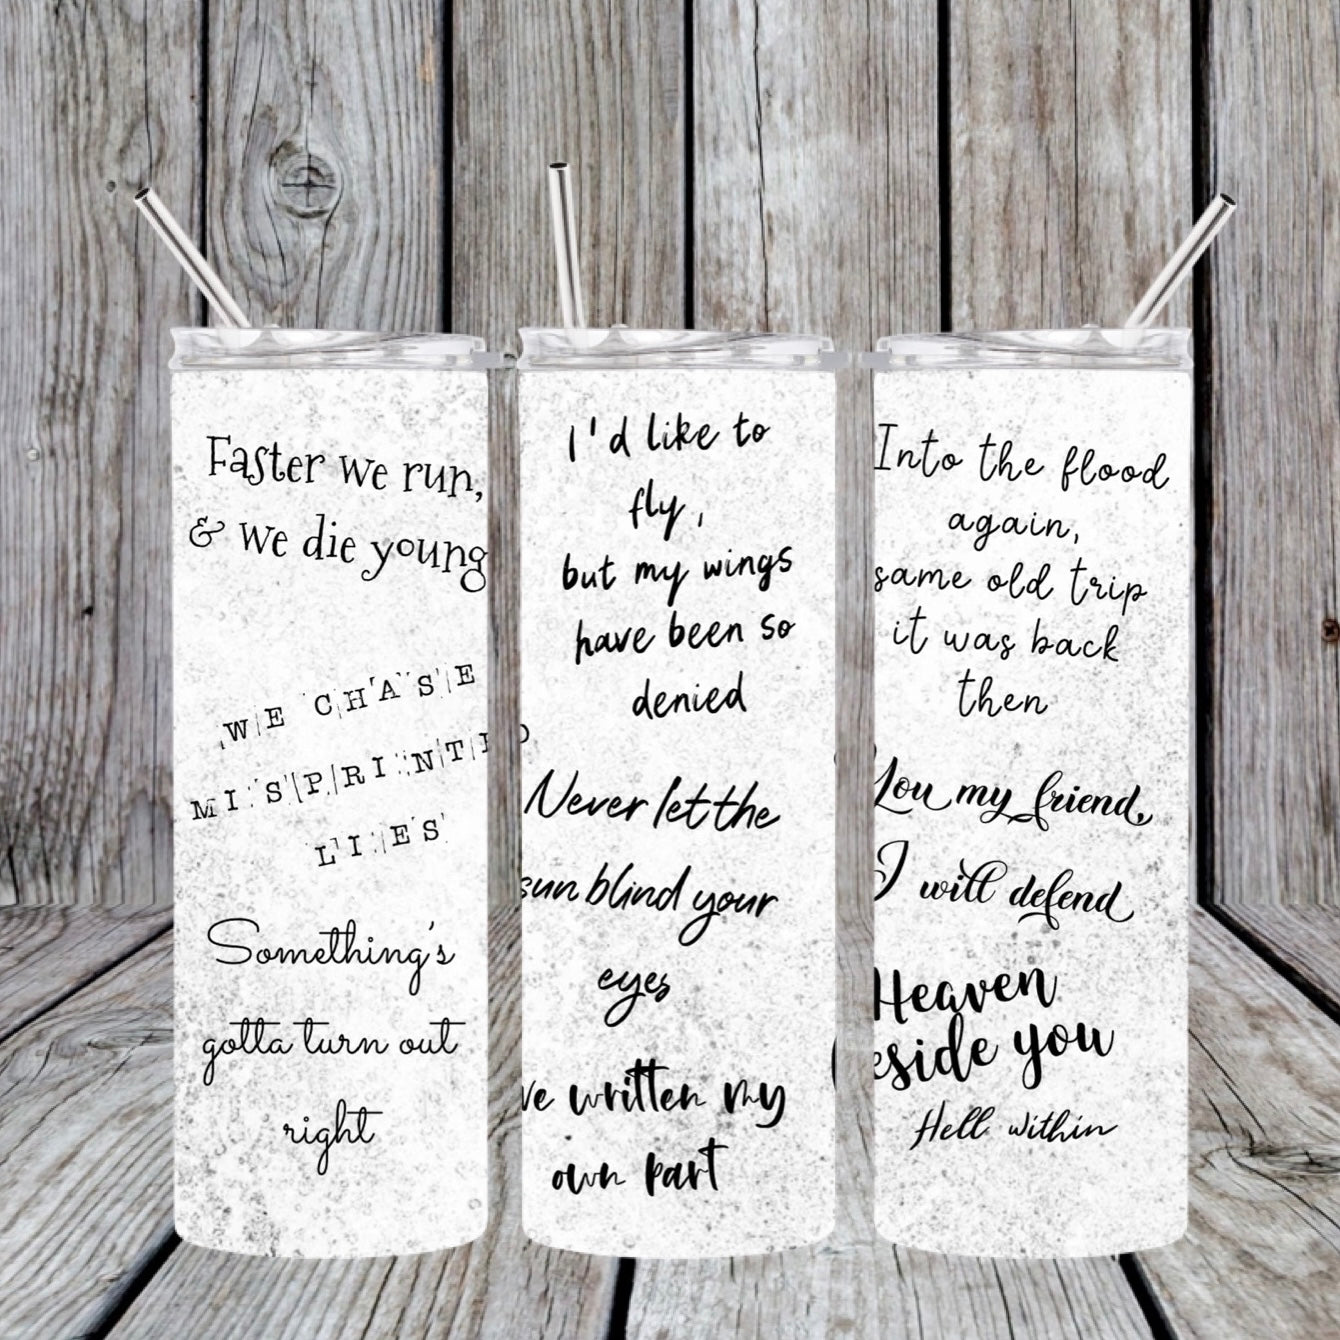 Faster we run,
& we die young
WE CHASE
MISPRINTED
LIES
Something's
gotta turn out
right
I'd like to
fly,
but my wings
have been so
denied
Never let the
sun blind your
eyes
ve written my
own part
Into the flood
again,
same old trip
it was back
then
You my friend,
I will defend
Heaven
eside you
Hell within